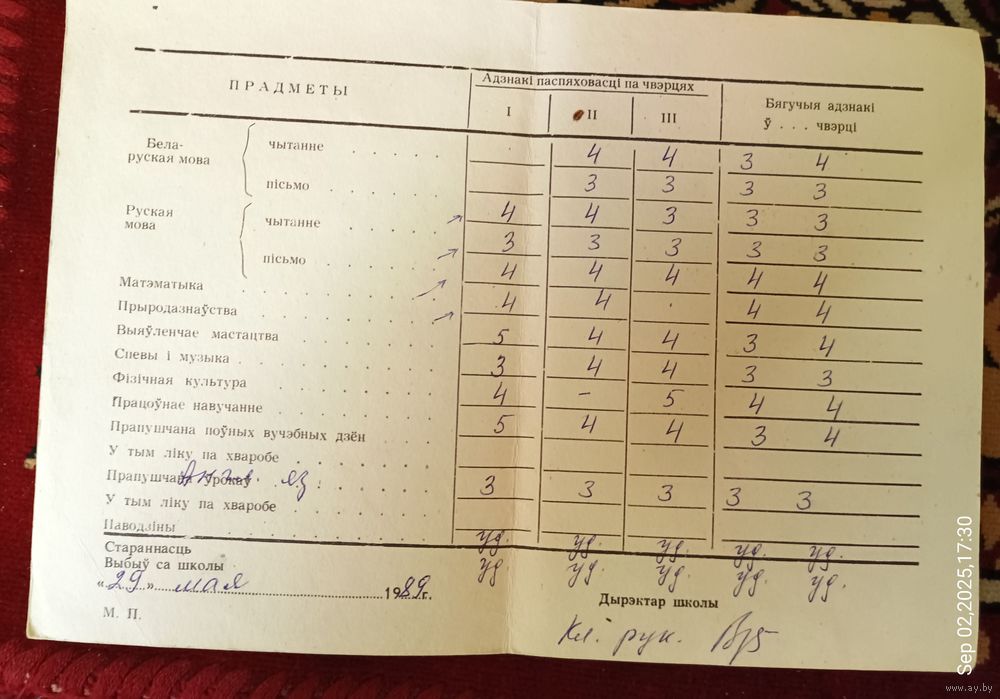 ПРАДМЕТЫ
Адзнакі паспяховасці па чвэрцях
I II III
Бягучыя адзнакі
ў . . . чвэрці
Бела-
руская мова
чытанне . . . . . 4 4 3 4
пісьмо . . . . . 3 3 3 3
Руская
мова
чытанне . . . . . 4 4 3 3 3
пісьмо . . . . . 3 3 3 3 3
Матэматыка . . . . . 4 4 4 4 4
Прыродазнаўства . . . . . 4 4 4 4
Выяўленчае мастацтва . . . . . 5 4 4 3 4
Спевы і музыка . . . . . 3 4 4 3 3
Фізічная культура . . . . . 4 – 5 4 4
Працоўнае навучанне . . . . . 5 4 4 3 4
Прапушчана поўных вучэбных дзён . . . .
У тым ліку па хваробе . . . . .
Прапушчана ўрокаў Англ. яз. 3 3 3 3 3
У тым ліку па хваробе . . . . .
Паводзіны . . . . . уд. уд. уд. уд. уд.
Стараннасць уд уд. уд. уд. уд.
Выбыў са школы
«29» мая 1989г.
М. П.
Дырэктар школы
Кл. рук.
Sep 02,2025,17:30
www.ay.by